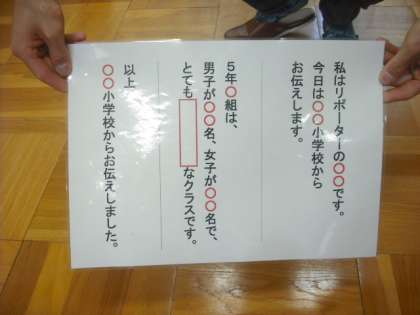 私はリポーターの〇〇です。
今日は〇〇小学校から
お伝えします。
5年〇組は、
男子が〇〇名、女子が〇〇名で、
とても なクラスです。
以上
〇〇小学校からお伝えしました。